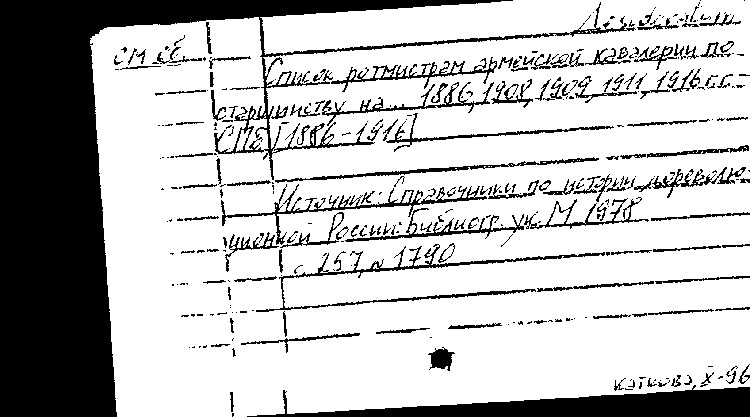 Desideratum
см. об.
Список ротмистрам армейской кавалерии по
старшинству на... 1886, 1908, 1909, 1911, 1916 г.г. -
СПб, [1886-1916]
Источник: Справочники по истории дореволю-
ционной России: Библиогр. ук. М, 1978
с. 257, № 1790
каткова, X-96